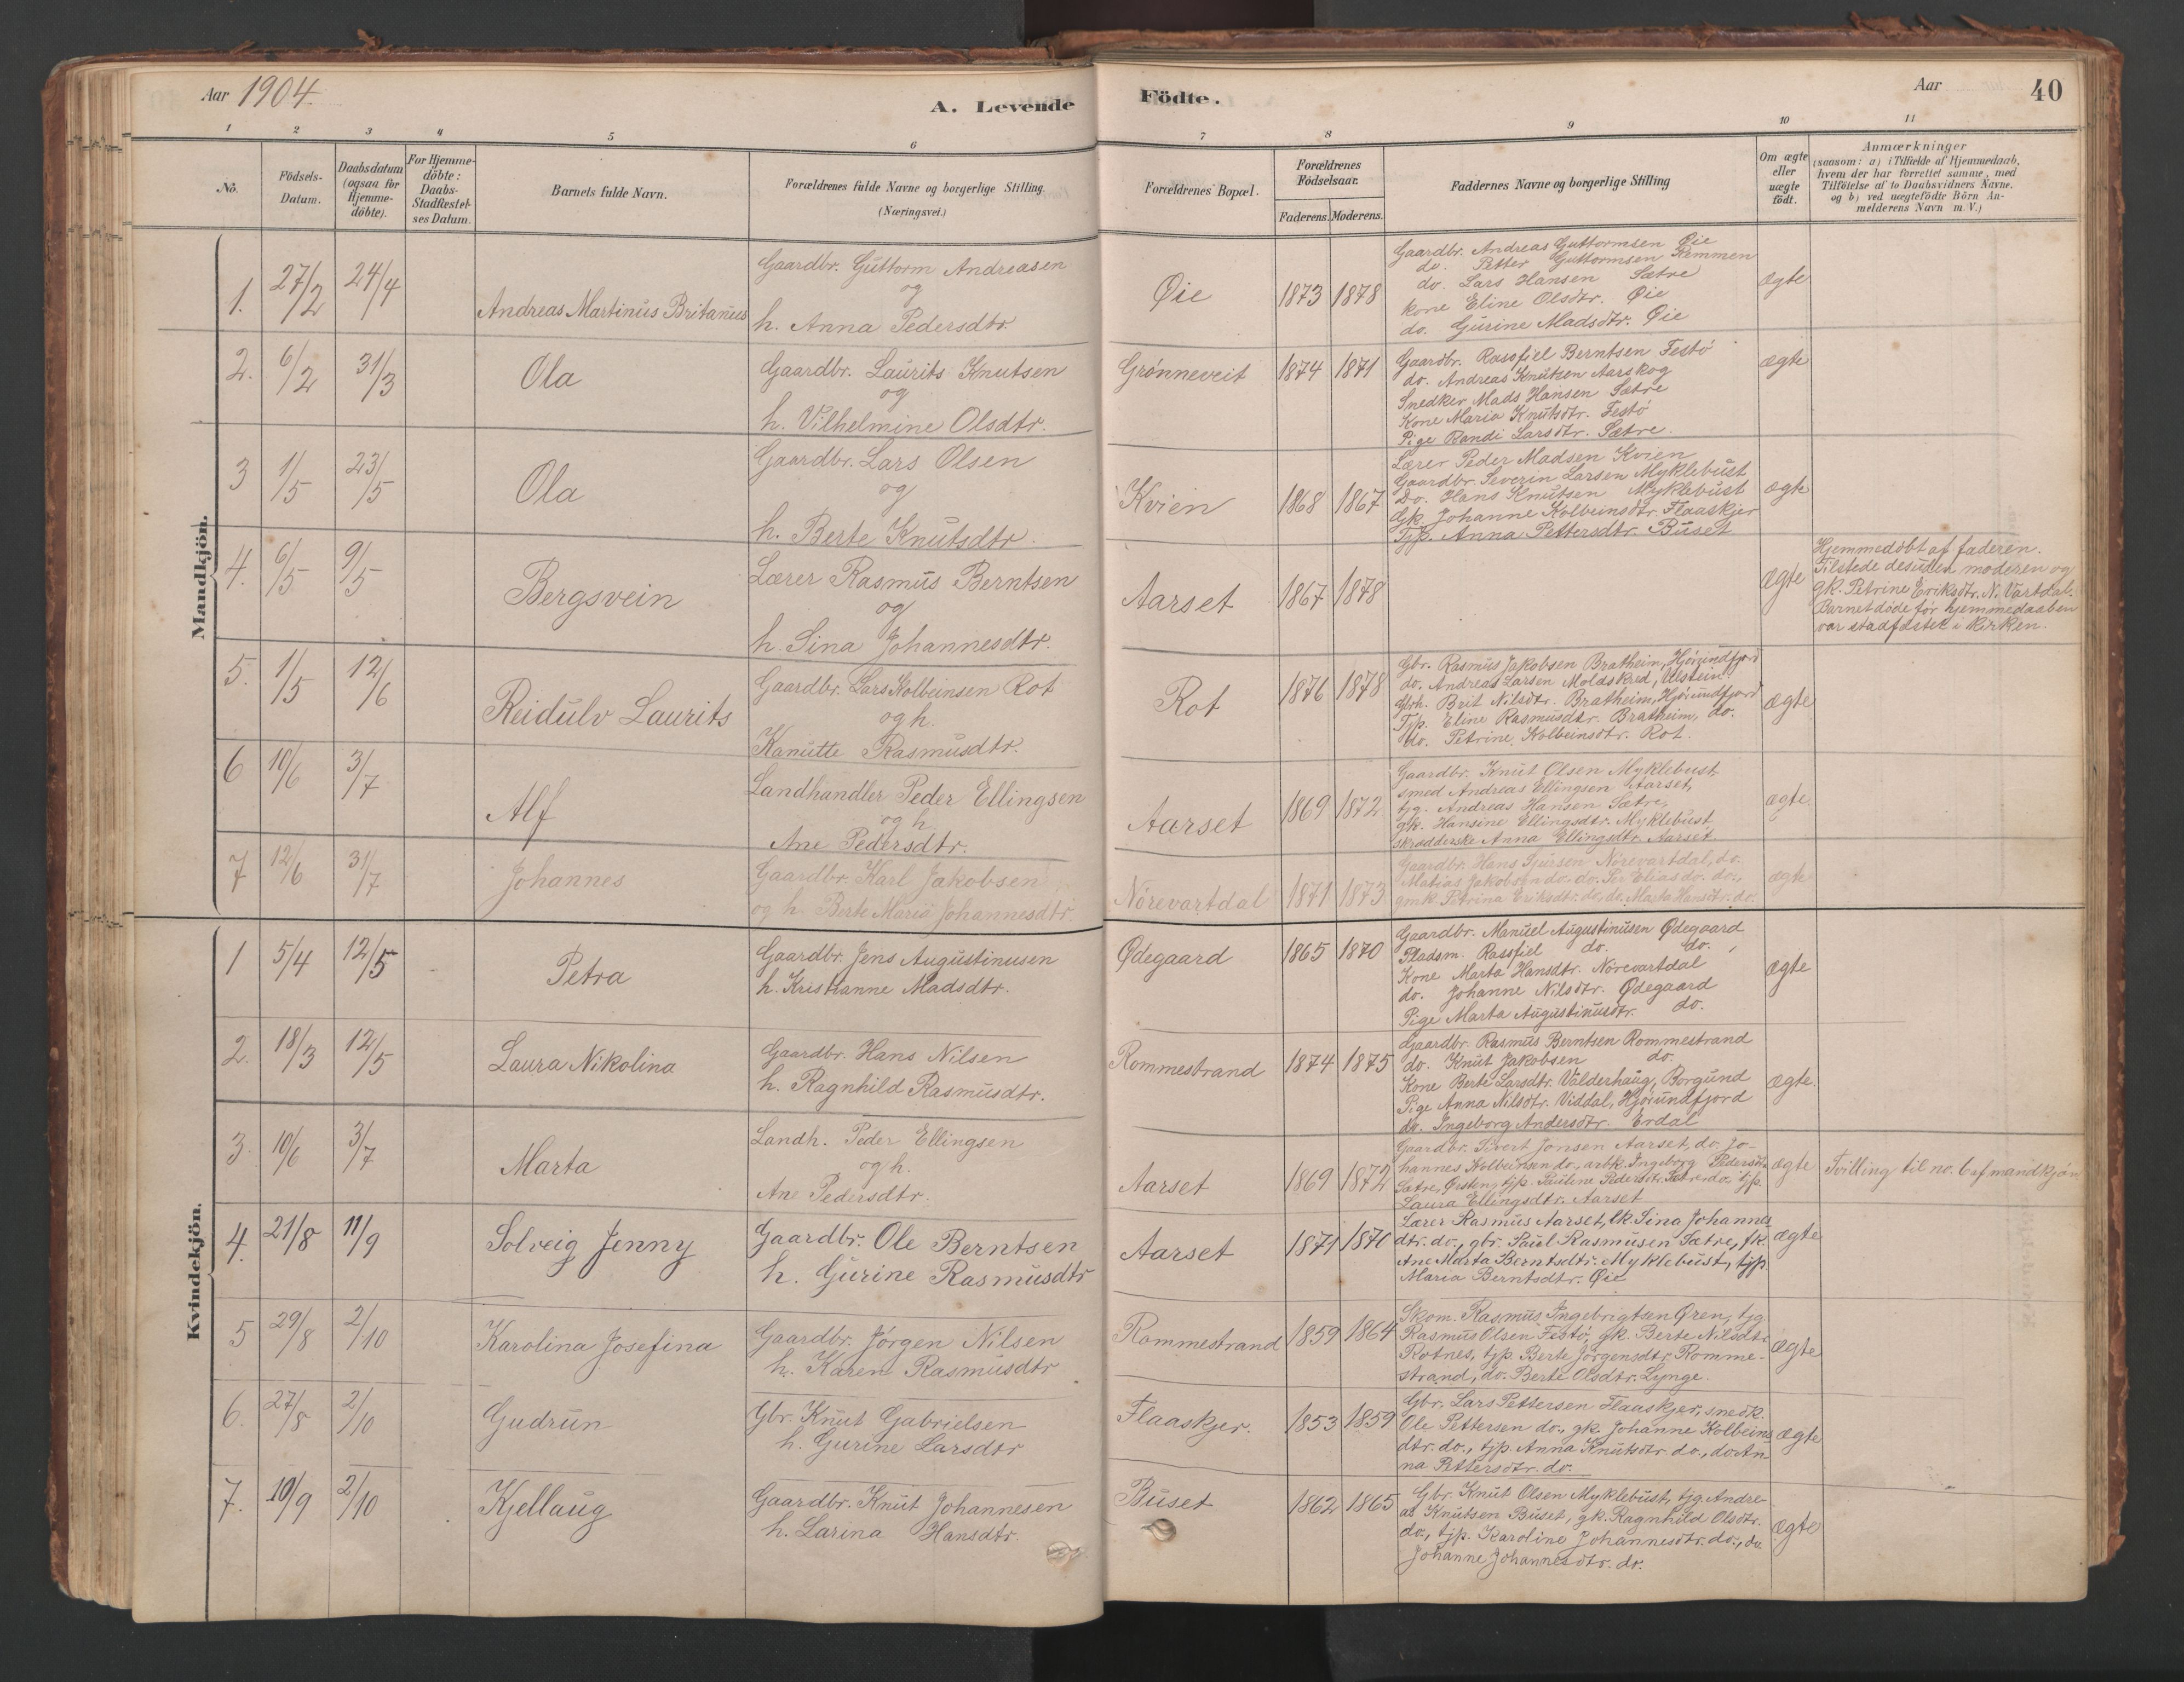 Aar 1904.
A. Levende
Födte.
Aar
40
1
2
3
4
5
6
7
8
9
10
11
No.
Födsels-
Datum.
Daabsdatum
(ogsaa for
Hjemme-
döbte).
For Hjemme-
döbte:
Daabs-
Stadfestel-
ses Datum.
Barnets fulde Navn.
Forældrenes fulde Navne og borgerlige Stilling.
(Næringsvei.)
Forældrenes Bopæl.
Forældrenes
Födselsaar.
Faderens.
Moderens.
Faddernes Navne og borgerlige Stilling
Om ægte
eller
uægte
födt.
Anmærkninger
(saasom: a) i Tilfælde af Hjemmedaab,
hvem der har forrettet samme, med
Tilföielse af to Daabsvidners Navne.
og b) ved uægtefödte Börn An-
melderens Navn m. V.)
Mandkjön.
1. 27/2 24/4
Andreas Martinus Britanius
Gaardbr. Guttorm Andreasen
og
h. Anna Pedersdtr.
Øie
1873 1878
Gaardbr. Andreas Guttormsen Øie
do. Petter Guttormsen Remmen
do. Lars Hansen Sætre
Kone Eline Olsdtr. Øie
do. Gurine Madsdtr. Øie
ægte
2. 6/2 31/3
Ola
Gaardbr. Laurits Knutsen
og
h. Vilhelmine Olsdtr.
Grønneveit
1874 1871
Gaardbr. Rassfiel Berntsen Festö
do. Andreas Knutsen Aarskog
Snedker Mads Hansen Sætre
Kone Maria Knutsdtr. Festö
Pige Randi Larsdtr. Sætre.
ægte
3 1/5 23/5
Ola
Gaardbr. Lars Olsen
og
h. Berte Knutsdtr.
Kvien
1868 1867
Lærer Peder Madsen Kvien
Gaardbr. Severin Larsen Myklebust
Do. Hans Knutsen Myklebust
Gk. Johanne Kolbeinsdtr. Flaaskjer
Tjp. Anna Pettersdtr. Buset
ægte
4. 6/5 9/5
Bergsvein
Lærer Rasmus Berntsen
og
h. Sina Johannesdtr.
Aarset
1867 1878
ægte
Hjemmedöbt af faderen.
Tilstede desuden moderen og
gk. Petrine Eriksdtr. N. Vartdal.
Barnet döde för hjemmedaaben
var stadfæstet i kirken.
5. 1/5 12/6
Reidulv Laurits
Gaardbr. Lars Kolbeinsen Rot
og h.
Kanutte Rasmusdtr.
Rot
1876 1878
Gbr. Rasmus Jakobsen Bratheim, Hjörundfjord
do. Andreas Larsen Moldskred, Ulstein
Gbrh. Brit Nilsdtr. Bratheim, Hjörundfjord
Tjp. Eline Rasmusdtr. Bratheim, do.
do. Petrine Kolbeinsdtr. Rot.
ægte
6 10/6 3/7
Alf
Landhandler Peder Ellingsen
og h
Ane Pedersdtr.
Aarset
1869 1872
Gaardbr. Knut Olsen Myklebust,
smed Andreas Ellingsen Aarset,
tjg. Andreas Hansen Sætre,
gk. Hansine Ellingsdtr. Myklebust
skrædderske Anna Ellingsdtr. Aarset
ægte.
7 12/6 31/7
Johannes
Gaardbr. Karl Jakobsen
og h. Berte Maria Johannesdtr.
Nörevartdal
1871 1873
Gaardbr. Hans Iversen Nörevartdal, do.
Matias Jakobsen do. do. Per Elias do. do.,
gmk. Petrina Eriksdtr. do, do. Marta Hansdtr. do.
ægte
Kvindekjön.
1 5/4 12/5
Petra
Gaardbr. Jens Augustinusen
h. Kristianne Madsdtr.
Ødegaard
1865 1870
Gaardbr. Manuel Augustinusen Ødegaard
Pladsm. Rassfiel do. do.
Kone Marta Hansdtr. Nörevartdal
do. Johanne Nilsdtr. Ødegaard
Pige Marta Augustinusdtr. do.
ægte
2. 18/3 12/5
Laura Nikolina
Gaardbr. Hans Nilsen
h. Ragnhild Rasmusdtr.
Rommestrand
1874 1875
Gaardbr. Rasmus Berntsen Rommestrand
do. Knut Jakobsen do.
Kone Berte Larsdtr. Valderhaug, Borgund
Pige Anna Nilsdtr. Viddal, Hjörundfjord
do. Ingeborg Andersdtr. Erdal
ægte.
3 10/6 3/7
Marta
Landh. Peder Ellingsen
og h.
Ane Pedersdtr.
Aarset
1869 1872
Gaardbr. Sivert Jonsen Aarset, do. Jo-
hannes Kolbeinsen do., arbk. Ingeborg Pedersdtr.
Sætre, Østen, tjp. Pauline Pedersdtr. Sætre do., tjp.
Laura Ellingsdtr. Aarset
ægte
Tvilling til no. 6 af mandkjön
4. 21/8 11/9
Solveig Jenny
Gaardbr. Ole Berntsen
h. Gurine Rasmusdtr
Aarset
1871 1870
Lærer Rasmus Aarset, lk. Sina Johannes
dtr. do., gbr. Paul Rasmusen Sætre, fk.
Ane Marta Berntsdtr. Myklebust, tjp.
Maria Berntsdtr. Øie
ægte
5 29/8 2/10
Karolina Josefina
Gaardbr. Jörgen Nilsen
h. Karen Rasmusdtr
Rommestrand
1859 1864
Skom. Rasmus Ingebrigtsen Ören, tjg
Rasmus Olsen Festö, gk. Berte Nilsdtr
Rotnes, tjp. Berte Jörgensdtr Romme-
strand, do. Berte Olsdtr. Lynge.
ægte
6. 27/8 2/10
Gudrun
Gbr. Knut Gabrielsen
h. Gurine Larsdtr
Flaaskjer.
1853 1859
Gbr. Lars Pettersen Flaaskjer, snedk.
Ole Pettersen do., gk. Johanne Kolbeins
dtr. do., tjp. Anna Knutsdtr. do., do. An-
na Pettersdtr. do.
ægte
7. 10/9 2/10
Kjellaug
Gaardbr. Knut Johannesen
h. Larina Hansdtr.
Buset
1862 1865
Gbr. Knut Olsen Myklebust, tjg. Andre-
as Knutsen Buset, gk. Ragnhild Olsdtr.
do., tjp. Karoline Johannesdtr. do., do
Johanne Johannesdtr. do.
ægte